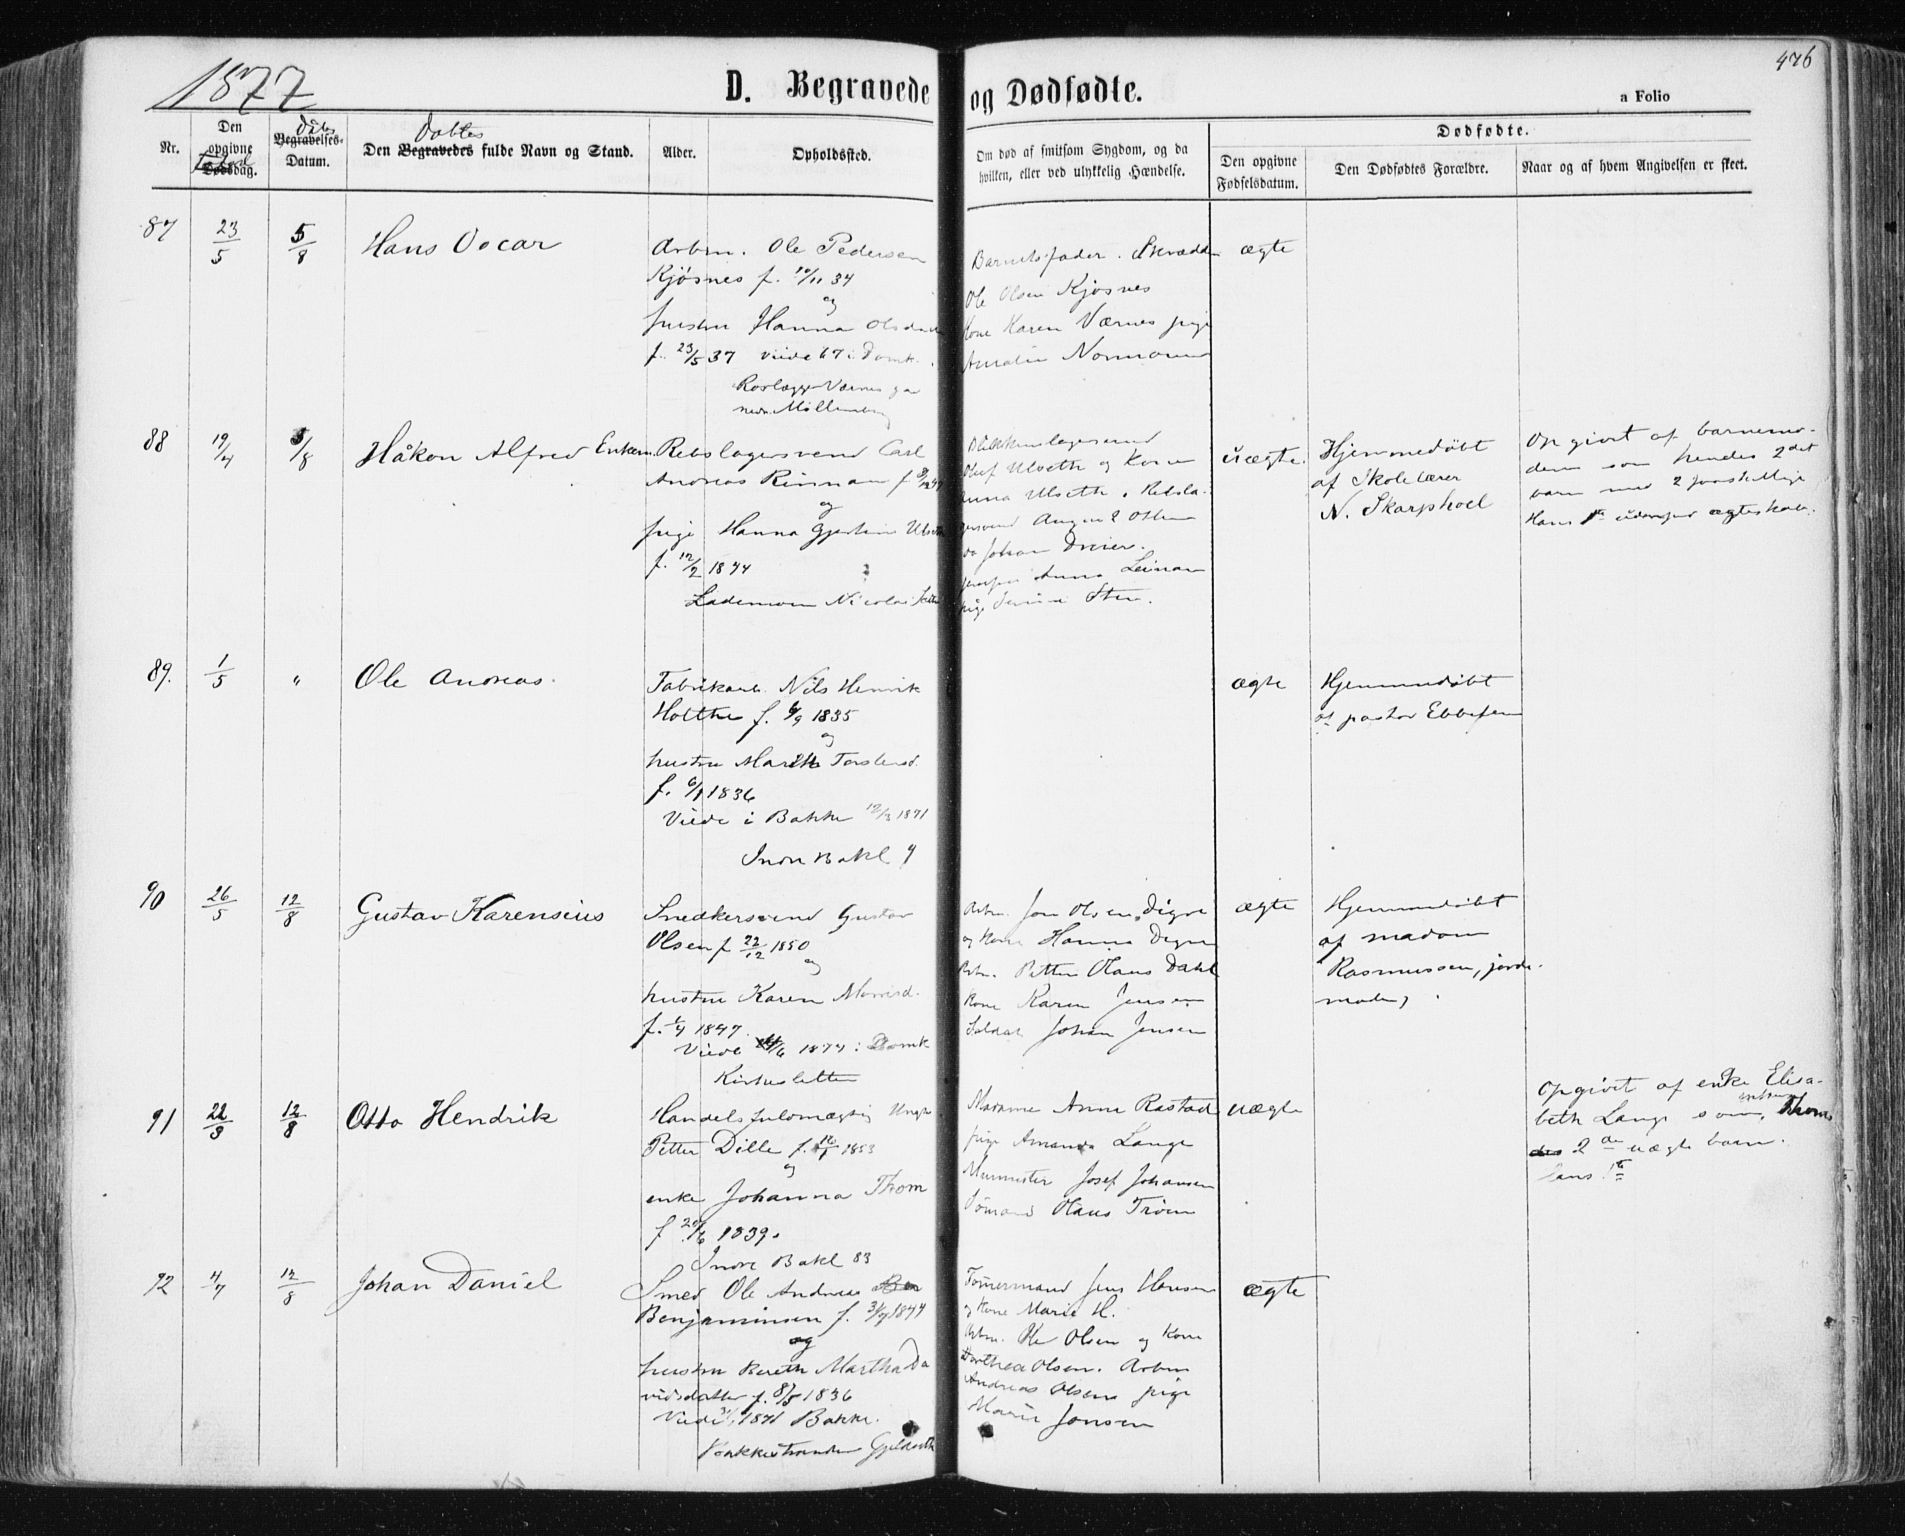 1877
D. Begravede og Dødfødte.
476
a Folio
Nr.
Den opgivne Dødsdag.
Fødsel
Begravelses-Datum.
Dåbs
Den Begravedes fulde Navn og Stand.
Døbtes
Alder.
Opholdssted.
Om død af smitsom Sygdom, og da hvilken, eller ved ulykkelig Hændelse.
Dødfødte.
Den opgivne Fødselsdatum.
Den Dødfødtes Forældre.
Naar og af hvem Angivelsen er skeet.
87 23/5 5/8 Hans Oscar
Arbm. Ole Pedersen
Kjøsnes f. 10/11 34
og
hustru Hanna Olsdatter
f. 23/5 37 viede 67 i Domk.
Møllenberg
Barnets fader. Skrædder
Ole Olsen Kjøsnes
Kone Karen Værnes pige
Amalie
ægte
88 19/4 5/8 Håkon Alfred
Rebslagersvend Carl
Andreas Rinnan f.
og
pige Hanna Gjertine Ulseth
f. 12/2 1844
Lademoen Nicolai
Oluf Ulseth og Kone
Anna Ulseth. Rebsla-
gersvend August Olsen
Johan Dreier.
Anna Leinan
pige
uægte.
Hjemmedøbt
af Skolelærer
N. Skarphoel
Opgivet af barnemo-
deren som hendes 2det
barn med 2 forskjellige
Hans 1te udenfor ægteskab.
89. 1/5 " Ole Andreas.
Fabrikarb. Nils Henrik
Holthe f. 6/9 1835
og
hustru Marith Torstensd.
f. 6/1 1836
Viede i Bakke 12/3 1871
Indre Bakl 9
ægte
Hjemmedøbt
af pastor Ebbesen
90 26/5 12/8 Gustav Karensius
Snedkersvend Gustav
Olsen f 22/12 1850
og
hustru Karen
f. 1/4 1847.
Viede 1874 i Domk
Kirkesletten
Arbm. Jon Olsen Digre
og Kone Hanna Digre
Arbm. Petter Olaus Dahl
Kone Karen Jensen
Soldat Johan Jensen
ægte
Hjemmedøbt
af madam
Rasmussen, jorde-
moder
91 22/3 12/8 Otto Hendrik
Handelsfuldmægtig Ungk.
Petter Dille f. 16/1 1853
og
enke Johanna Thom
f. 20/6 1839.
Indre Bakl 83
Madame Anne Rastad
pige Amanda Lange
Murmester Josef Johansen
Olaus Trøen
uægte
Opgivet af enke Elisa-
beth Lange som enken Thoms
2det uægte barn.
hans 1te
92 4/7 12/8 Johan Daniel
Smed Ole Andreas
Benjaminsen f. 3/9 1844
og
hustru Bereth Martha Da
vidsdatter f. 8/5 1836
Viede 1871 Bakke.
Bakkestranden Gjeldseth
Tømermand Jens Hansen
og Kone Marie H.
Arbm. Ole Olsen og Kone
Dorthea Olsen. Arbm
Andreas Olsen pige
Marie Jonsen
ægte